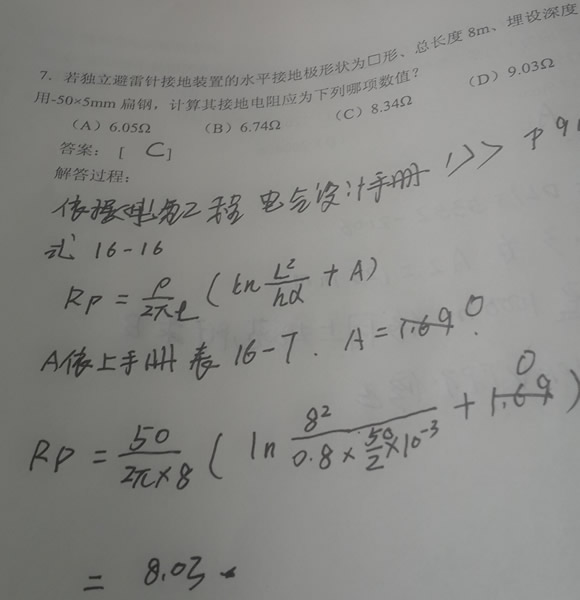 7. 若独立避雷针接地装置的水平接地极形状为口形、总长度 8m、埋设深度
用-50×5mm 扁钢，计算其接地电阻应为下列哪项数值？
（A）6.05Ω （B）6.74Ω （C）8.34Ω （D）9.03Ω
答案： [ C ]
解答过程：
依据 工程电气设计手册 1》> P91
式 16-16
Rp = ρ/2πL (ln L²/hd + A)
A依上手册表 16-7. A = 1.69 0
Rp = 50/2π×8 ( ln 8²/0.8×50/2×10⁻³ + 1.69 0 )
= 8.03